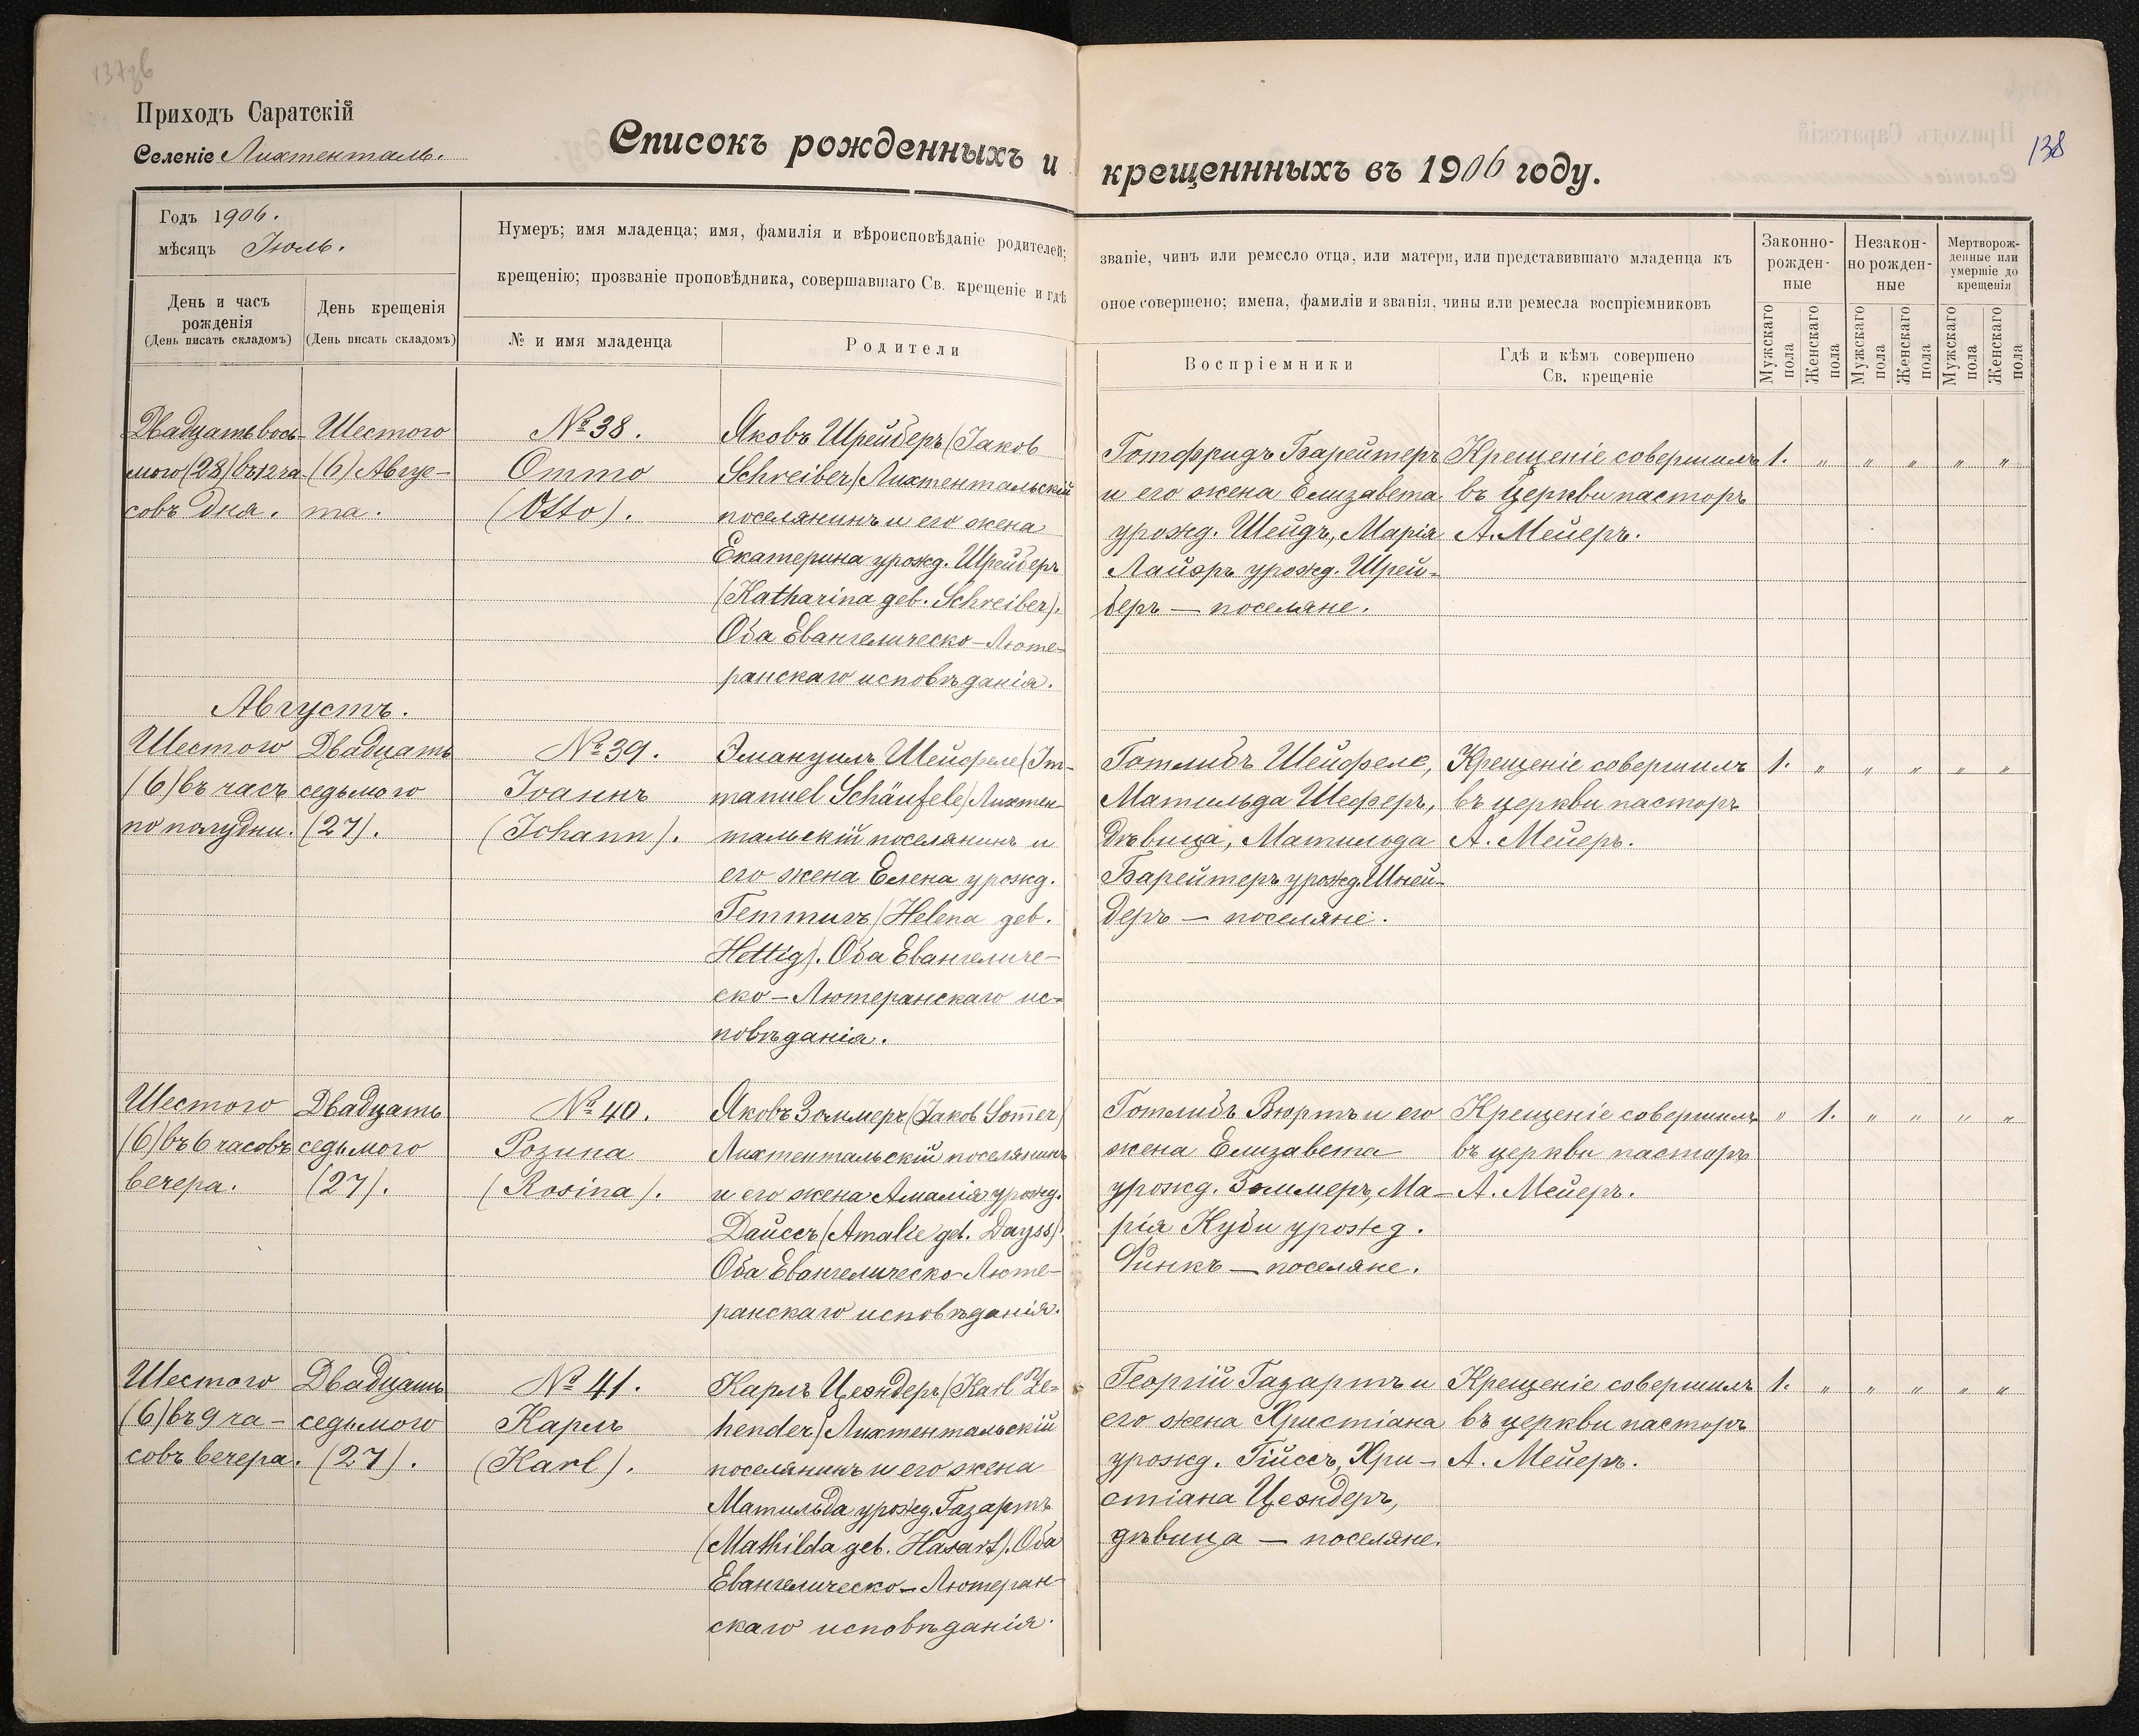 137зв
Приходъ Саратскій
Селеніе Лихтенталь.
Списокъ рожденныхъ и крещеннныхъ въ 1906 году.
138
Годъ 1906.
мѣсяцъ Іюль.
Нумеръ; имя младенца; имя, фамилія и вѣроисповѣданіе родителей;
званіе, чинъ или ремесло отца, или матери, или представившаго младенца къ
крещенію; прозваніе проповѣдника, совершавшаго Св. крещеніе и гдѣ
оное совершено; имена, фамиліи и званія, чины или ремесла воспріемниковъ
День и часъ
рожденія
(День писать складомъ)
День крещенія
(День писать складомъ)
№ и имя младенца
Родители
Воспріемники
Гдѣ и кѣмъ совершено
Св. крещеніе
Законно-
рожден-
ные
Незакон-
но рожден-
ные
Мертворож-
денные или
умершіе до
крещенія
Мужскаго
пола
Женскаго
пола
Мужскаго
пола
Женскаго
пола
Мужскаго
пола
Женскаго
пола
Двадцать вось-
мого (28) въ 12 ча-
совъ дня.
Шестого
(6) Авгус-
та.
№ 38.
Отто
(Otto).
Яковъ Шрейберъ (Jakob
Schreiber) Лихтентальскій
поселянинъ и его жена
Екатерина урожд. Шрейберъ
(Katharina geb. Schreiber).
Оба Евангелическо-Люте-
ранскаго исповѣданія.
Готфридъ Барейтеръ
и его жена Елизавета
урожд. Шейдъ, Марія
Лайэръ урожд. Шрей-
беръ — поселяне.
Крещеніе совершилъ
въ церкви пасторъ
А. Мейеръ.
1. „ „ „ „ „
Августъ.
Шестого
(6) въ часъ
по полудни.
Двадцать
седьмого
(27).
№ 39.
Іоаннъ
(Johann).
Эмануилъ Шейфеле (Im-
manuel Schäufele) Лихтен-
тальскій поселянинъ и
его жена Елена урожд.
Геттигъ (Helena geb.
Hettig). Оба Евангеличе-
ско-Лютеранскаго ис-
повѣданія.
Готлибъ Шейфеле,
Матильда Шеферъ,
дѣвица, Матильда
Барейтеръ урожд. Шней-
деръ — поселяне.
Крещеніе совершилъ
въ церкви пасторъ
А. Мейеръ.
1. „ „ „ „ „
Шестого
(6) въ 6 часовъ
вечера.
Двадцать
седьмого
(27).
№ 40.
Розина
(Rosina).
Яковъ Зоммеръ (Jakob Som̄er)
Лихтентальскій поселянинъ
и его жена Амалія урожд.
Дайссъ (Amalie geb. Dayss).
Оба Евангелическо-Люте-
ранскаго исповѣданія.
Готлибъ Вюртъ и его
жена Елизавета
урожд. Зоммеръ, Ма-
рія Куби урожд.
Финкъ — поселяне.
Крещеніе совершилъ
въ церкви пасторъ
А. Мейеръ.
„ 1. „ „ „ „
Шестого
(6) въ 9 ча-
совъ вечера.
Двадцать
седьмого
(27).
№ 41.
Карлъ
(Karl).
Карлъ Цеэндеръ (Karl Ze-
hender) Лихтентальскій
поселянинъ и его жена
Матильда урожд. Газартъ
(Mathilda geb. Hasart). Оба
Евангелическо-Лютеран-
скаго исповѣданія.
Георгій Газартъ и
его жена Христіана
урожд. Гійссъ, Хри-
стіана Цеэндеръ,
дѣвица — поселяне.
Крещеніе совершилъ
въ церкви пасторъ
А. Мейеръ.
1. „ „ „ „ „